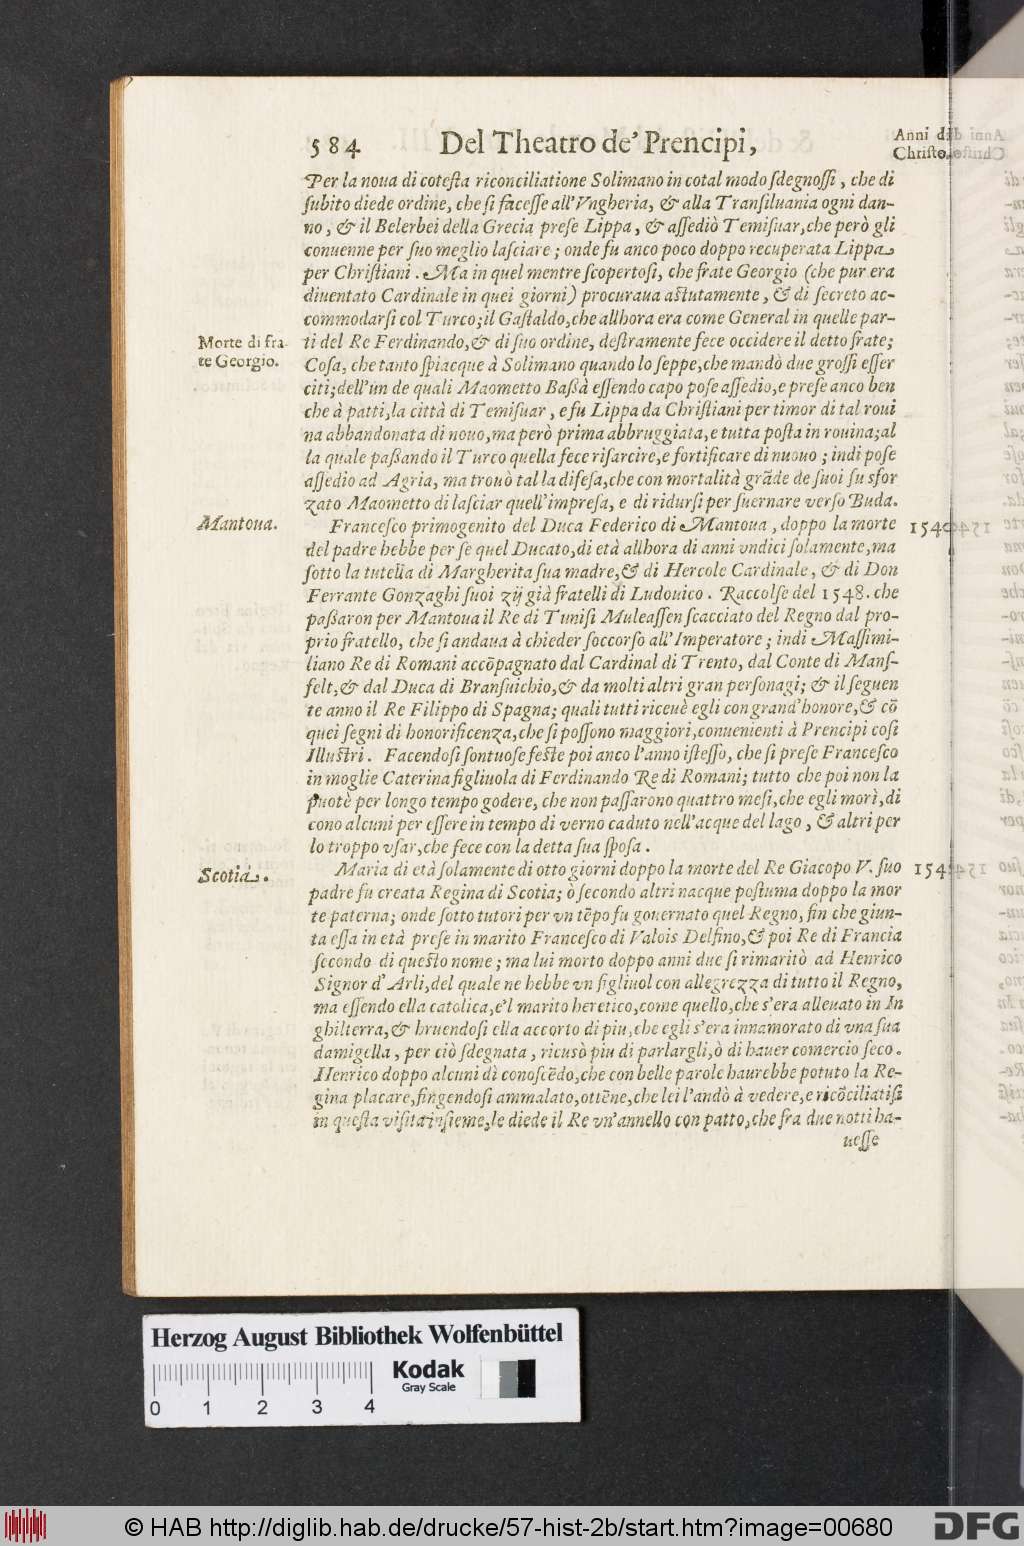 584 Del Theatro de' Prencipi, Anni di Christo.
Per la noua di cotesta riconciliatione Solimano in cotal modo sdegnossi, che di
subito diede ordine, che si facesse all'Vngheria, & alla Transiluania ogni dan-
no, & il Belerbei della Grecia prese Lippa, & assediò Temisuar, che però gli
conuenne per suo meglio lasciare; onde fu anco poco doppo recuperata Lippa
per Christiani. Ma in quel mentre scopertosi, che frate Georgio (che pur era
diuentato Cardinale in quei giorni) procuraua astutamente, & di secreto ac-
commodarsi col Turco; il Gastaldo, che allhora era come General in quelle par-
Morte di fra-
te Georgio.
ti del Re Ferdinando, & di suo ordine, destramente fece occidere il detto frate;
Cosa, che tanto spiacque à Solimano quando lo seppe, che mandò due grossi esser
citi; dell'un de quali Maometto Baßà essendo capo pose assedio, e prese anco ben
che à patti, la città di Temisuar, e fu Lippa da Christiani per timor di tal roui
na abbandonata di nouo, ma però prima abbruggiata, e tutta posta in rouina; al
la quale paßando il Turco quella fece risarcire, e fortificare di nuouo; indi pose
assedio ad Agria, ma trouò tal la difesa, che con mortalità grãde de suoi fu sfor
zato Maometto di lasciar quell'impresa, e di ridursi per suernare verso Buda.
Mantoua.
Francesco primogenito del Duca Federico di Mantoua, doppo la morte 1540
del padre hebbe per se quel Ducato, di età allhora di anni vndici solamente, ma
sotto la tutella di Margherita sua madre, & di Hercole Cardinale, & di Don
Ferrante Gonzaghi suoi zij già fratelli di Ludouico. Raccolse del 1548. che
paßaron per Mantoua il Re di Tunisi Muleassen scacciato del Regno dal pro-
prio fratello, che si andaua à chieder soccorso all'Imperatore; indi Massimi-
liano Re di Romani accõpagnato dal Cardinal di Trento, dal Conte di Mans-
felt, & dal Duca di Bransuichio, & da molti altri gran personagi; & il seguen
te anno il Re Filippo di Spagna; quali tutti riceuè egli con grand'honore, & cõ
quei segni di honorificenza, che si possono maggiori, conuenienti à Prencipi cosi
Illustri. Facendosi sontuose feste poi anco l'anno istesso, che si prese Francesco
in moglie Caterina figliuola di Ferdinando Re di Romani; tutto che poi non la
puotè per longo tempo godere, che non passarono quattro mesi, che egli morì, di
cono alcuni per essere in tempo di verno caduto nell'acque del lago, & altri per
lo troppo vsar, che fece con la detta sua sposa.
Scotia.
Maria di età solamente di otto giorni doppo la morte del Re Giacopo V. suo
padre fu creata Regina di Scotia; ò secondo altri nacque postuma doppo la mor
te paterna; onde sotto tutori per vn tẽpo fu gouernato quel Regno, fin che giun-
ta essa in età prese in marito Francesco di Valois Delfino, & poi Re di Francia
secondo di questo nome; ma lui morto doppo anni due si rimaritò ad Henrico
Signor d'Arli, del quale ne hebbe vn figliuol con allegrezza di tutto il Regno,
ma essendo ella catolica, e'l marito heretico, come quello, che s'era alleuato in In
ghilterra, & hauendosi ella accorto di piu, che egli s'era innamorato di vna sua
damigella, per ciò sdegnata, ricusò piu di parlargli, ò di hauer comercio seco.
Henrico doppo alcuni dì conoscẽdo, che con belle parole haurebbe potuto la Re-
gina placare, fingendosi ammalato, ottẽne, che lei l'andò à vedere, e ricõciliatisi
in questa visita insieme, le diede il Re vn'annello con patto, che fra due notti ha-
uesse
Herzog August Bibliothek Wolfenbüttel
Kodak
Gray Scale
0 1 2 3 4
© HAB http://diglib.hab.de/drucke/57-hist-2b/start.htm?image=00680
DFG